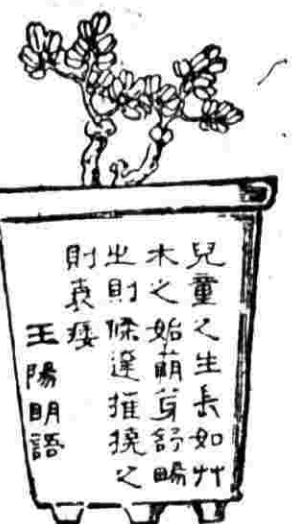 兒童之生長如艸
木之始萌芽舒暢
㞢則條達摧撓之
則衰痿
王陽明語